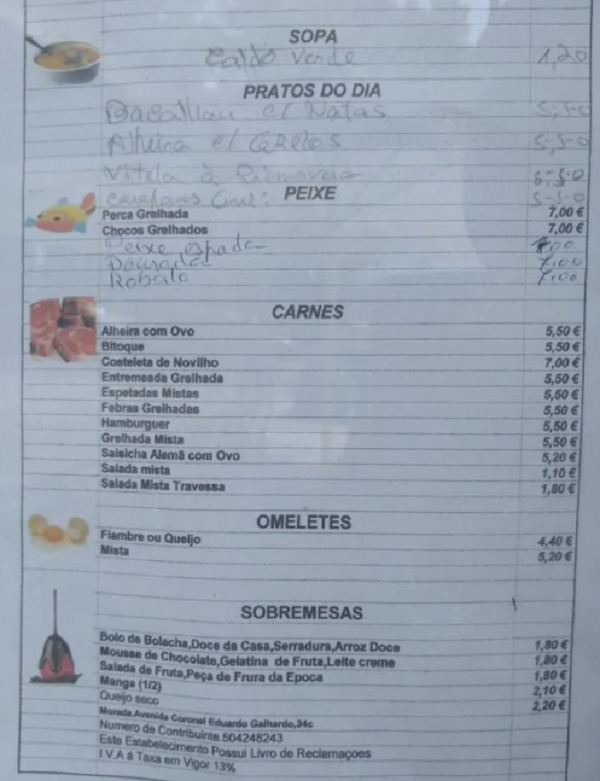 SOPA
Caldo Verde 1,20
PRATOS DO DIA
Bacalhau c/ Natas 5,50
Alheira c/ Grelos 5,50
Vitela à Primavera 5,50
5,50
PEIXE
Perca Grelhada 7,00 €
Chocos Grelhados 7,00 €
Peixe espada 7,00
Dourada 7,00
Robalo 7,00
CARNES
Alheira com Ovo 5,50 €
Bitoque 5,50 €
Costeleta de Novilho 7,00 €
Entremeada Grelhada 5,50 €
Espetadas Mistas 5,50 €
Febras Grelhadas 5,50 €
Hamburguer 5,50 €
Grelhada Mista 5,50 €
Salsicha Alemã com Ovo 5,20 €
Salada mista 1,10 €
Salada Mista Travessa 1,80 €
OMELETES
Fiambre ou Queijo 4,40 €
Mista 5,20 €
SOBREMESAS
Bolo de Bolacha,Doce da Casa,Serradura,Arroz Doce 1,80 €
Mousse de Chocolate,Gelatina de Fruta,Leite creme 1,80 €
Salada de Fruta,Peça de Frura da Epoca 1,80 €
Manga (1/2) 2,10 €
Queijo seco 2,20 €
Morada Avenida Coronel Eduardo Galhardo,34c
Numero de Contribuinte 504248243
Este Estabelecimento Possui Livro de Reclamaçoes
I.V.A á Taxa em Vigor 13%